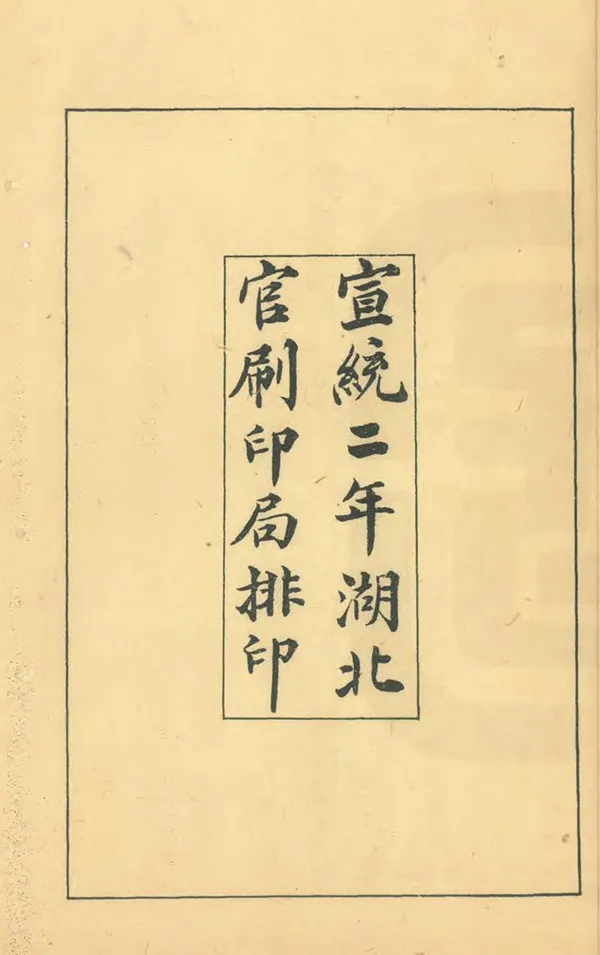 宣統二年湖北
官刷印局排印